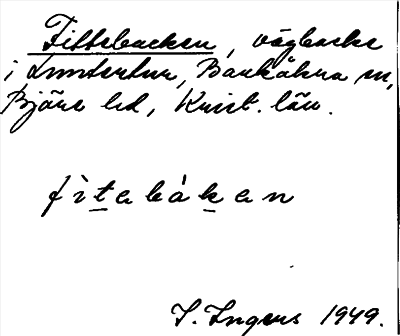 Fittebacken, vägbacke
i Luntertun, Barkåkra sn,
Bjäre hd, Krist. län.
fìtebákan
I. Ingers 1949.